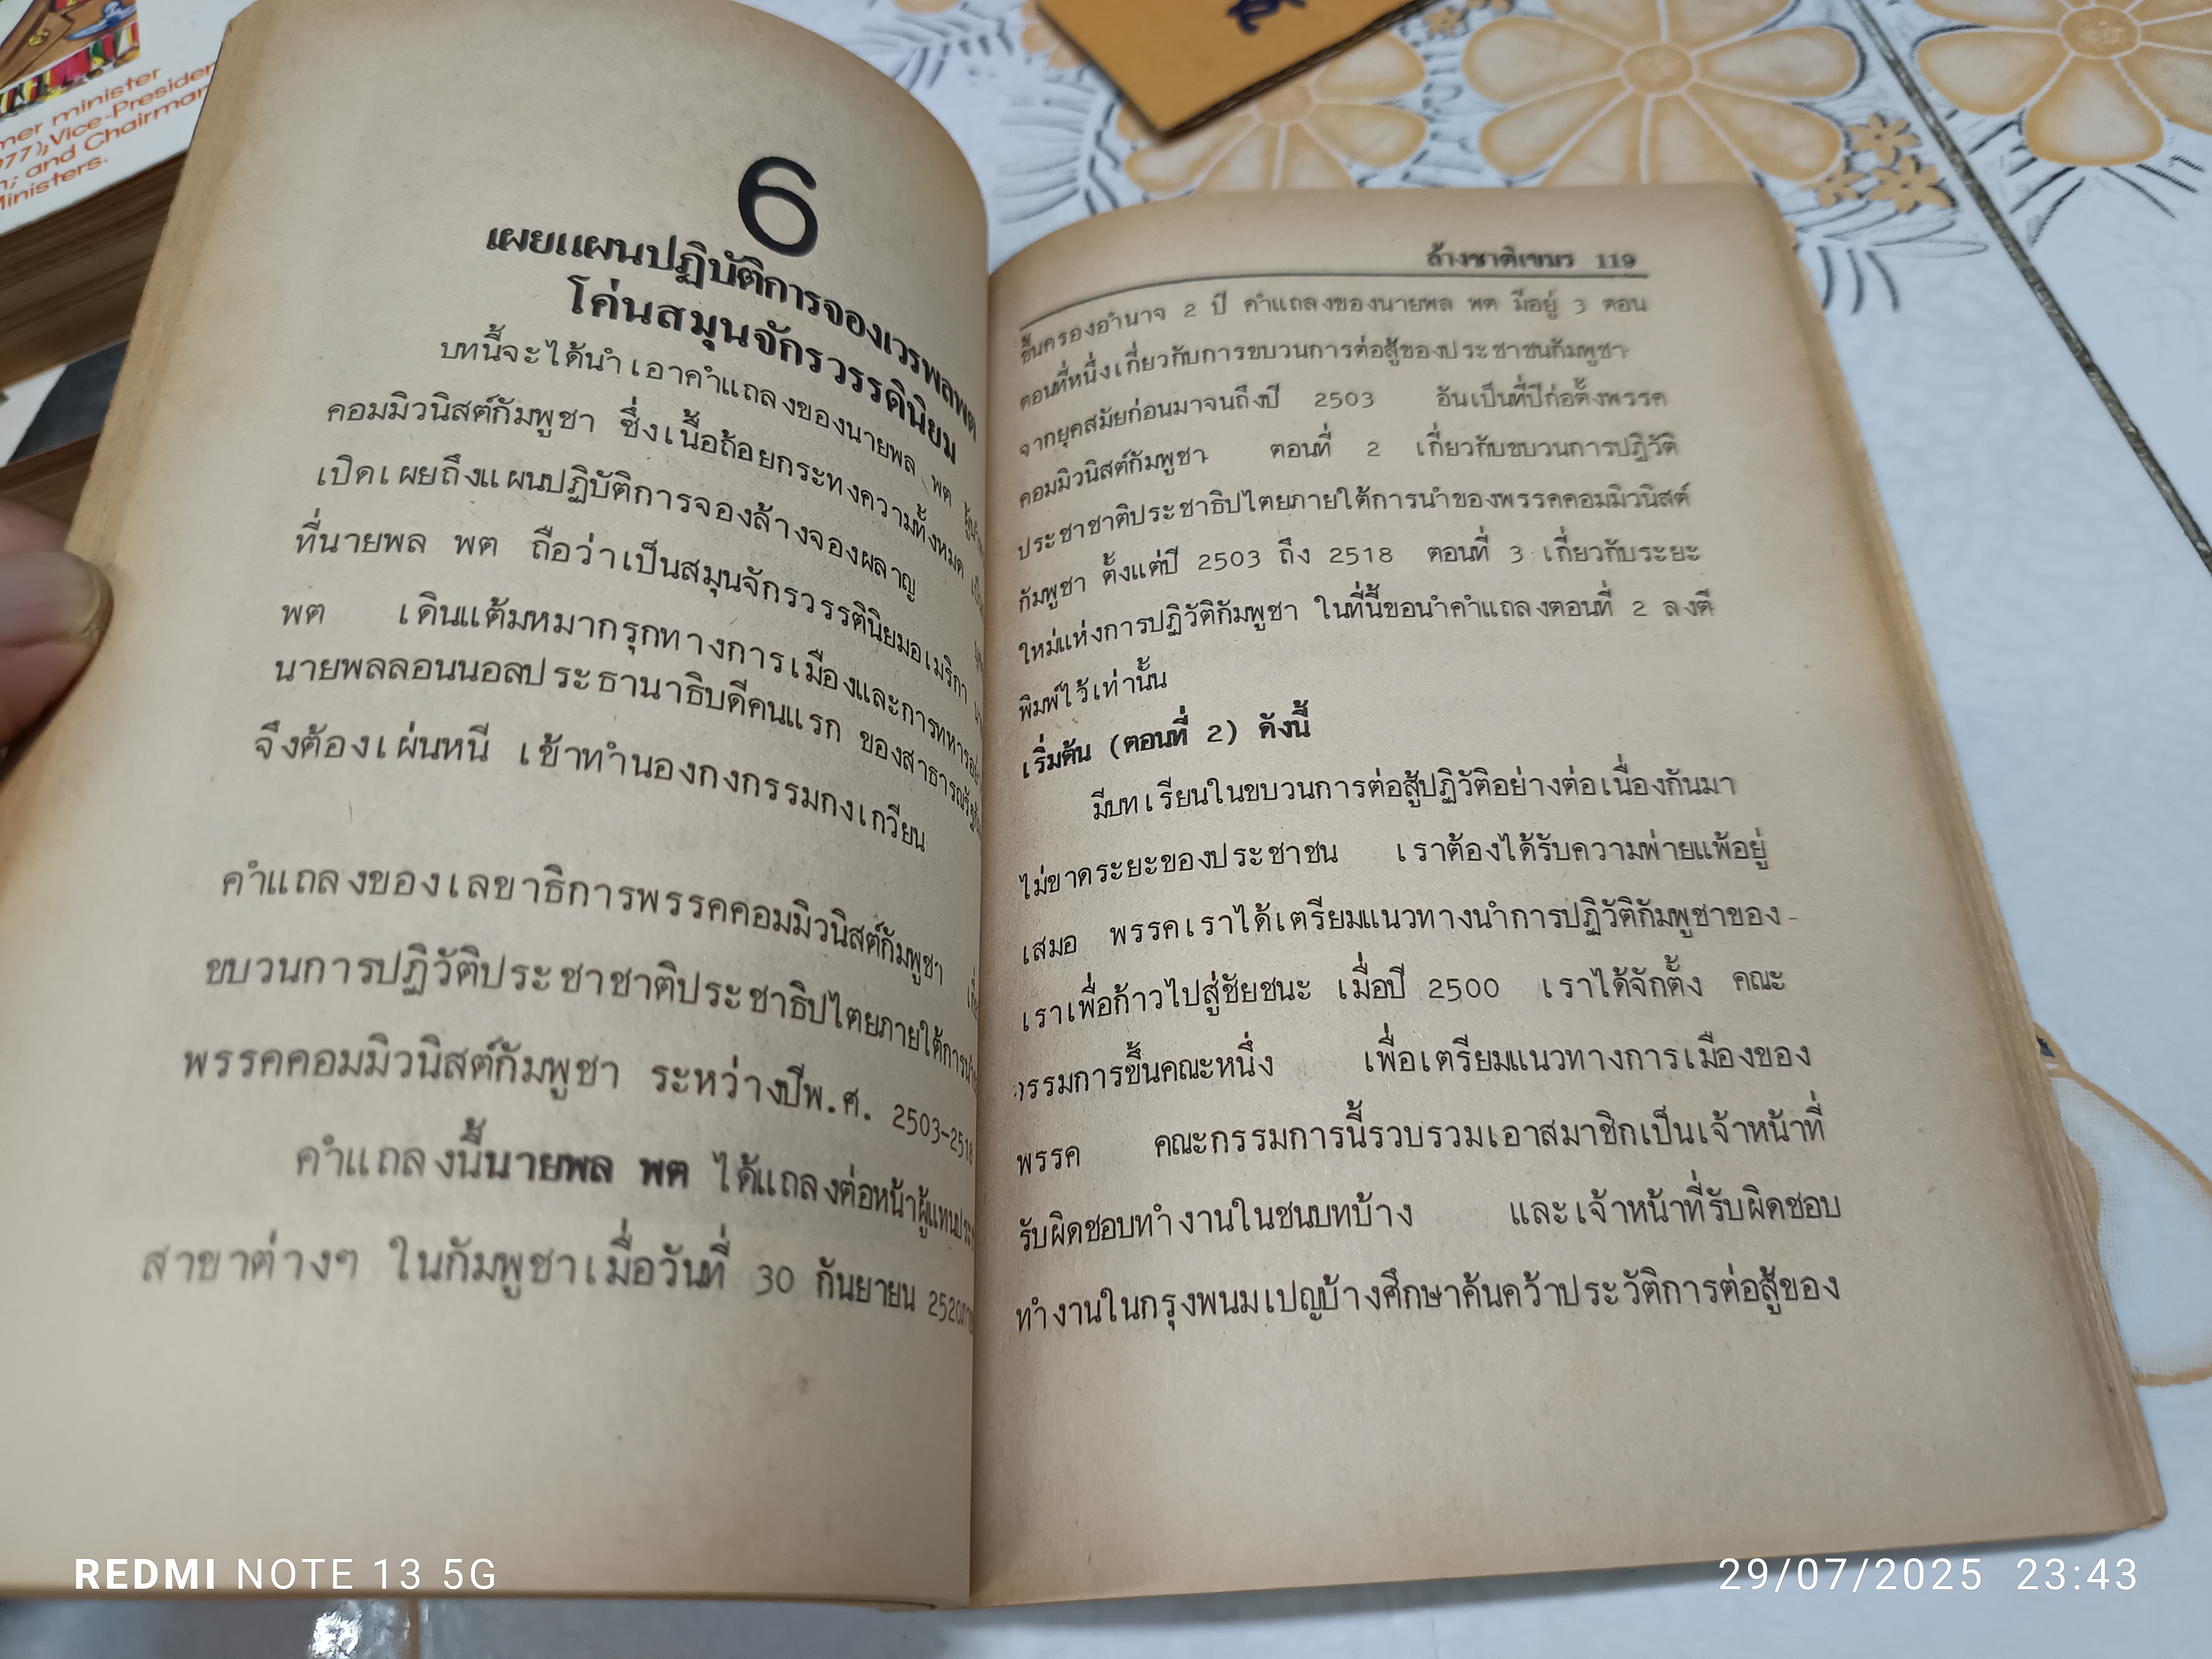 ner minister
977), Vice-Presiden
n; and Chairman
Ministers.
6
เผยแผนปฏิบัติการจองเวรพลพต
โค่นสมุนจักรวรรดินิยม
บทนี้จะได้นำเอาคำแถลงของนายพล พต
คอมมิวนิสต์กัมพูชา ซึ่งเนื้อถ้อยกระทงความทั้งหมด
เปิดเผยถึงแผนปฏิบัติการจองล้างจองผลาญ
ที่นายพล พต ถือว่าเป็นสมุนจักรวรรตินิยมอเมริกา
พต เดินแต้มหมากรุกทางการเมืองและการทหาร
นายพลลอนนอลประธานาธิบดีคนแรก ของสาธารณรัฐ
จึงต้องเผ่นหนี เข้าทำนองกงกรรมกงเกวียน
คำแถลงของเลขาธิการพรรคคอมมิวนิสต์กัมพูชา
ขบวนการปฏิวัติประชาชาติประชาธิปไตยภายใต้การนำ
พรรคคอมมิวนิสต์กัมพูชา ระหว่างปีพ.ศ. 2503-2518
คำแถลงนี้นายพล พต ได้แถลงต่อหน้าผู้แทน
สาขาต่างๆ ในกัมพูชาเมื่อวันที่ 30 กันยายน 2520
ล้างชาติเขมร 119
ขึ้นครองอำนาจ 2 ปี คำแถลงของนายพล พต มีอยู่ 3 ตอน
ตอนที่หนึ่งเกี่ยวกับการขบวนการต่อสู้ของประชาชนกัมพูชา
จากยุคสมัยก่อนมาจนถึงปี 2503 อันเป็นที่ปีก่อตั้งพรรค
คอมมิวนิสต์กัมพูชา ตอนที่ 2 เกี่ยวกับขบวนการปฏิวัติ
ประชาชาติประชาธิปไตยภายใต้การนำของพรรคคอมมิวนิสต์
กัมพูชา ตั้งแต่ปี 2503 ถึง 2518 ตอนที่ 3 เกี่ยวกับระยะ
ใหม่แห่งการปฏิวัติกัมพูชา ในที่นี้ขอนำคำแถลงตอนที่ 2 ลงตี
พิมพ์ไว้เท่านั้น
เริ่มต้น (ตอนที่ 2) ดังนี้
มีบทเรียนในขบวนการต่อสู้ปฏิวัติอย่างต่อเนื่องกันมา
ไม่ขาดระยะของประชาชน เราต้องได้รับความพ่ายแพ้อยู่
เสมอ พรรคเราได้เตรียมแนวทางนำการปฏิวัติกัมพูชาของ-
เราเพื่อก้าวไปสู่ชัยชนะ เมื่อปี 2500 เราได้จักตั้ง คณะ
กรรมการขึ้นคณะหนึ่ง เพื่อเตรียมแนวทางการเมืองของ
พรรค คณะกรรมการนี้รวบรวมเอาสมาชิกเป็นเจ้าหน้าที่
รับผิดชอบทำงานในชนบทบ้าง และเจ้าหน้าที่รับผิดชอบ
ทำงานในกรุงพนมเปญบ้างศึกษาค้นคว้าประวัติการต่อสู้ของ
REDMI NOTE 13 5G
29/07/2025 23:43